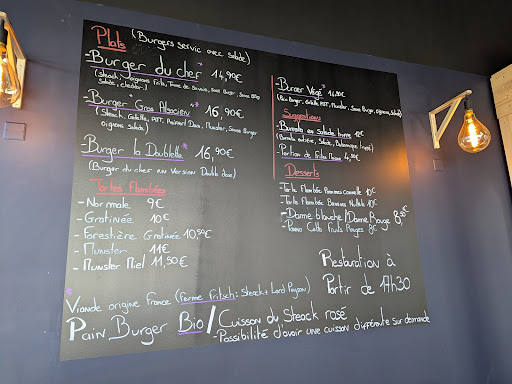 Plats (Burgers servic avec salade)
-Burger du chef 14,90€
(Steack, oignons frits, Tomme de Savoie, Sauce Burger, Sauce BBQ
Salade, cheddar)
-Burger Gros Alsacien 16,90€
(Steack, Galette, PDT, Paysan, Munster, Sauce Burger
oignons, salade)
-Burger la Doublette 16,90€
(Burger du chef en version Double)
Tartes flambées
-Normale 9€
-Gratinée 10€
-Forestière Gratinée 10,50€
-Munster 11€
-Munster Miel 11,50€
-Burger Végé
(Pain Burger, Galette PDT, Munster, Sauce Burger, oignons, Salade)
Suggestions
-Burrata en Salade 12€
(Burrata entière, Salade, Balsamique)
-Portion de Frites 4,00€
Desserts
-Tarte Flambée Pommes cannelle 10€
-Tarte Flambée Bananes Nutella 10€
-Dame blanche/Dame Rouge 8,50€
-Panna Cotta Fruits Rouges 8€
Restauration à
Partir de 17h30
Viande origine France (Ferme Fritsch: Steack + Lard Paysan)
Pain Burger Bio/Cuisson du Steack rosé
-Possibilité d'avoir une cuisson différente sur demande